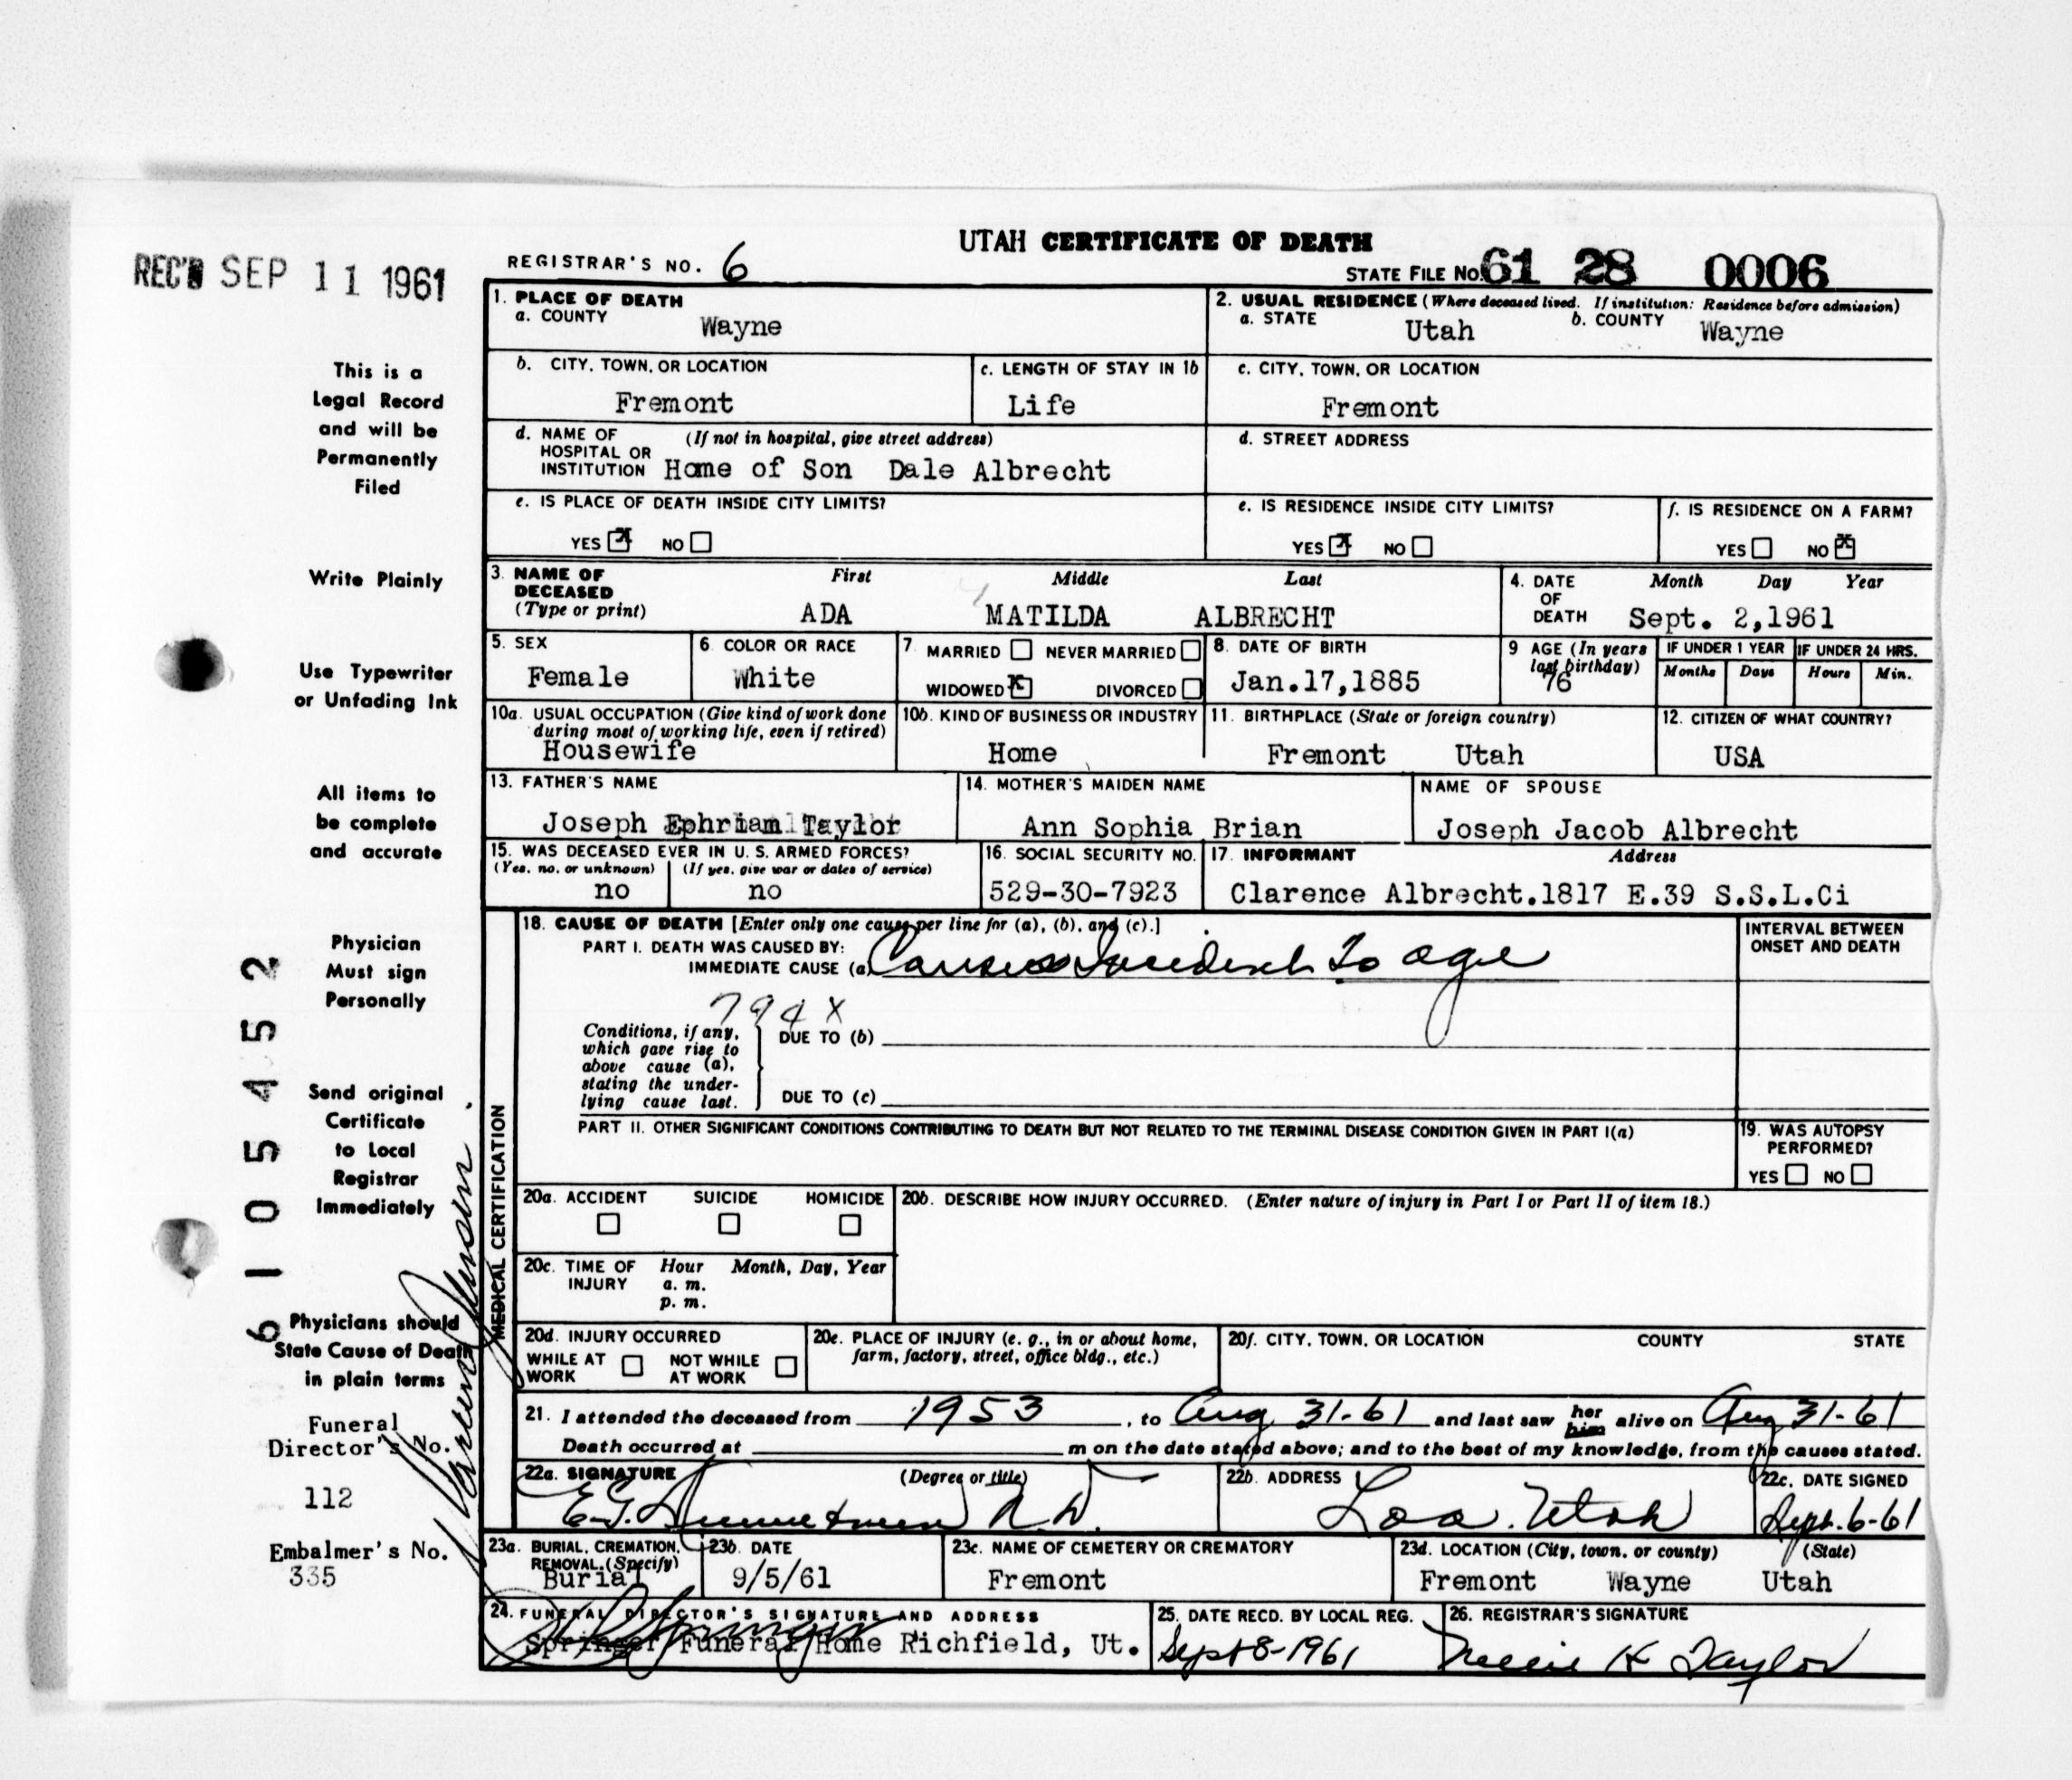 UTAH CERTIFICATE OF DEATH
REC'D SEP 11 1961
REGISTRAR'S NO. 6
STATE FILE NO. 61 28 0006
1. PLACE OF DEATH
a. COUNTY
Wayne
2. USUAL RESIDENCE (Where deceased lived. If institution: Residence before admission)
a. STATE Utah b. COUNTY Wayne
This is a
Legal Record
and will be
Permanently
Filed
b. CITY, TOWN, OR LOCATION
Fremont
c. LENGTH OF STAY IN 1b
Life
c. CITY, TOWN, OR LOCATION
Fremont
d. NAME OF (If not in hospital, give street address)
HOSPITAL OR
INSTITUTION Home of Son Dale Albrecht
d. STREET ADDRESS
e. IS PLACE OF DEATH INSIDE CITY LIMITS?
YES X NO
e. IS RESIDENCE INSIDE CITY LIMITS?
YES X NO
f. IS RESIDENCE ON A FARM?
YES NO X
Write Plainly
3. NAME OF DECEASED (Type or print)
First Middle Last
ADA MATILDA ALBRECHT
4. DATE OF DEATH
Month Day Year
Sept. 2,1961
Use Typewriter
or Unfading Ink
5. SEX
Female
6 COLOR OR RACE
White
7 MARRIED NEVER MARRIED
WIDOWED X DIVORCED
8. DATE OF BIRTH
Jan.17,1885
9 AGE (In years
last birthday)
76
IF UNDER 1 YEAR IF UNDER 24 HRS.
Months Days Hours Min.
10a. USUAL OCCUPATION (Give kind of work done
during most of working life, even if retired)
Housewife
10b. KIND OF BUSINESS OR INDUSTRY
Home
11. BIRTHPLACE (State or foreign country)
Fremont Utah
12. CITIZEN OF WHAT COUNTRY?
USA
All items to
be complete
and accurate
13. FATHER'S NAME
Joseph Ephriam Taylor
14. MOTHER'S MAIDEN NAME
Ann Sophia Brian
NAME OF SPOUSE
Joseph Jacob Albrecht
15. WAS DECEASED EVER IN U. S. ARMED FORCES?
(Yes, no, or unknown) (If yes, give war or dates of service)
no no
16. SOCIAL SECURITY NO.
529-30-7923
17. INFORMANT Address
Clarence Albrecht.1817 E.39 S.S.L.Ci
Physician
Must sign
Personally
Send original
Certificate
to Local
Registrar
Immediately
Physicians should
State Cause of Death
in plain terms
6105452
MEDICAL CERTIFICATION
18. CAUSE OF DEATH [Enter only one cause per line for (a), (b), and (c).]
PART I. DEATH WAS CAUSED BY:
IMMEDIATE CAUSE (a) Causes Incident to age
INTERVAL BETWEEN
ONSET AND DEATH
794 X
Conditions, if any,
which gave rise to
above cause (a),
stating the under-
lying cause last.
DUE TO (b)
DUE TO (c)
PART II. OTHER SIGNIFICANT CONDITIONS CONTRIBUTING TO DEATH BUT NOT RELATED TO THE TERMINAL DISEASE CONDITION GIVEN IN PART I(a)
19. WAS AUTOPSY
PERFORMED?
YES NO
20a. ACCIDENT SUICIDE HOMICIDE
20b. DESCRIBE HOW INJURY OCCURRED. (Enter nature of injury in Part I or Part II of item 18.)
20c. TIME OF INJURY Hour Month, Day, Year
a. m.
p. m.
20d. INJURY OCCURRED
WHILE AT WORK NOT WHILE AT WORK
20e. PLACE OF INJURY (e. g., in or about home,
farm, factory, street, office bldg., etc.)
20f. CITY, TOWN, OR LOCATION COUNTY STATE
21. I attended the deceased from 1953, to Aug 31-61 and last saw her him alive on Aug 31-61
Death occurred at m on the date stated above; and to the best of my knowledge, from the causes stated.
22a. SIGNATURE (Degree or title)
22b. ADDRESS
Loa. Utah
22c. DATE SIGNED
Sept. 6-61
Funeral
Director's No.
112
Embalmer's No.
335
23a. BURIAL, CREMATION,
REMOVAL, (Specify)
Burial
23b. DATE
9/5/61
23c. NAME OF CEMETERY OR CREMATORY
Fremont
23d. LOCATION (City, town, or county) (State)
Fremont Wayne Utah
24. FUNERAL DIRECTOR'S SIGNATURE AND ADDRESS
Springer Funeral Home Richfield, Ut.
25. DATE RECD. BY LOCAL REG.
Sept 8-1961
26. REGISTRAR'S SIGNATURE
K Taylor